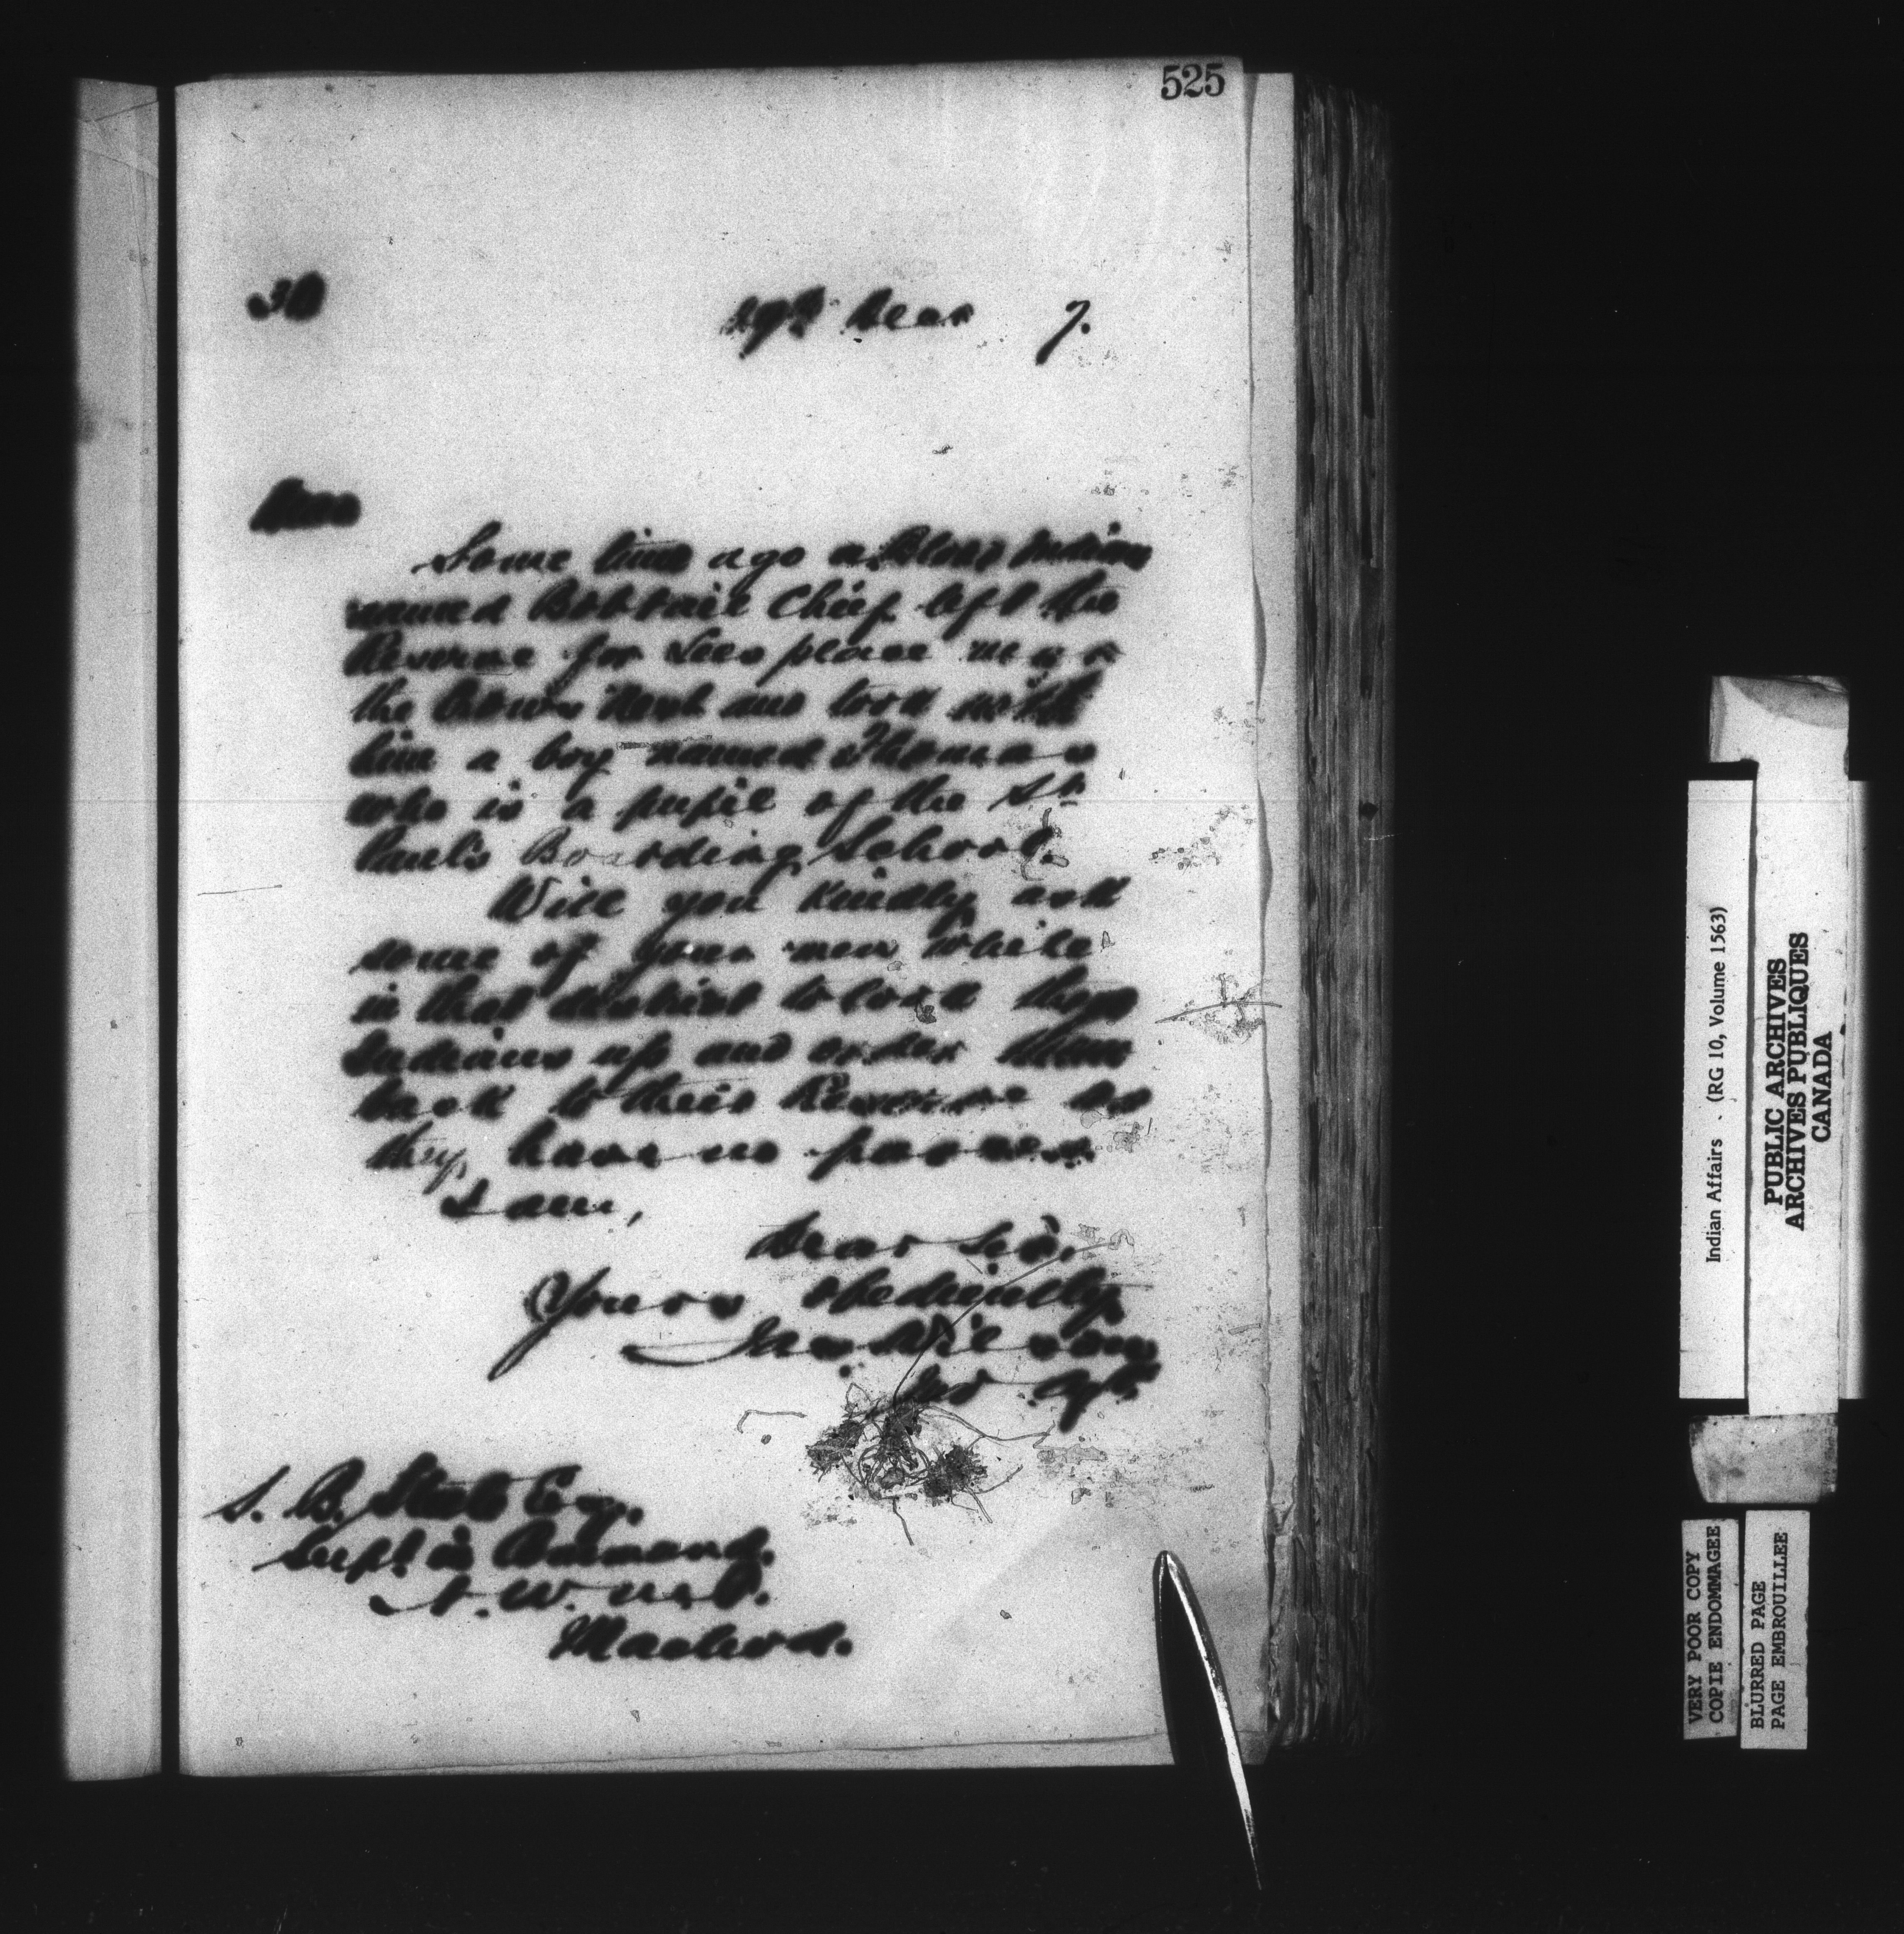 525
30
29th Dec 7.
Some time ago a Blood Indian
named Bobtail Chief left the
Reserve for Lees place near
the Crows Nest and took with
him a boy named Thomas
who is a pupil of the St
Paul's Boarding School.
Will you kindly ask
some of your men while
in that district to look these
Indians up and order them
back to their Reserve as
they have no passes.
I am,
Dear Sir.
Yours obediently
Jas Wilson
Ind Agt.
S. B. Steele Esq.
Supt in Command.
N. W. M. P.
Macleod.
Indian Affairs . (RG 10, Volume 1563)
PUBLIC ARCHIVES
ARCHIVES PUBLIQUES
CANADA
VERY POOR COPY
COPIE ENDOMMAGEE
BLURRED PAGE
PAGE EMBROUILLEE